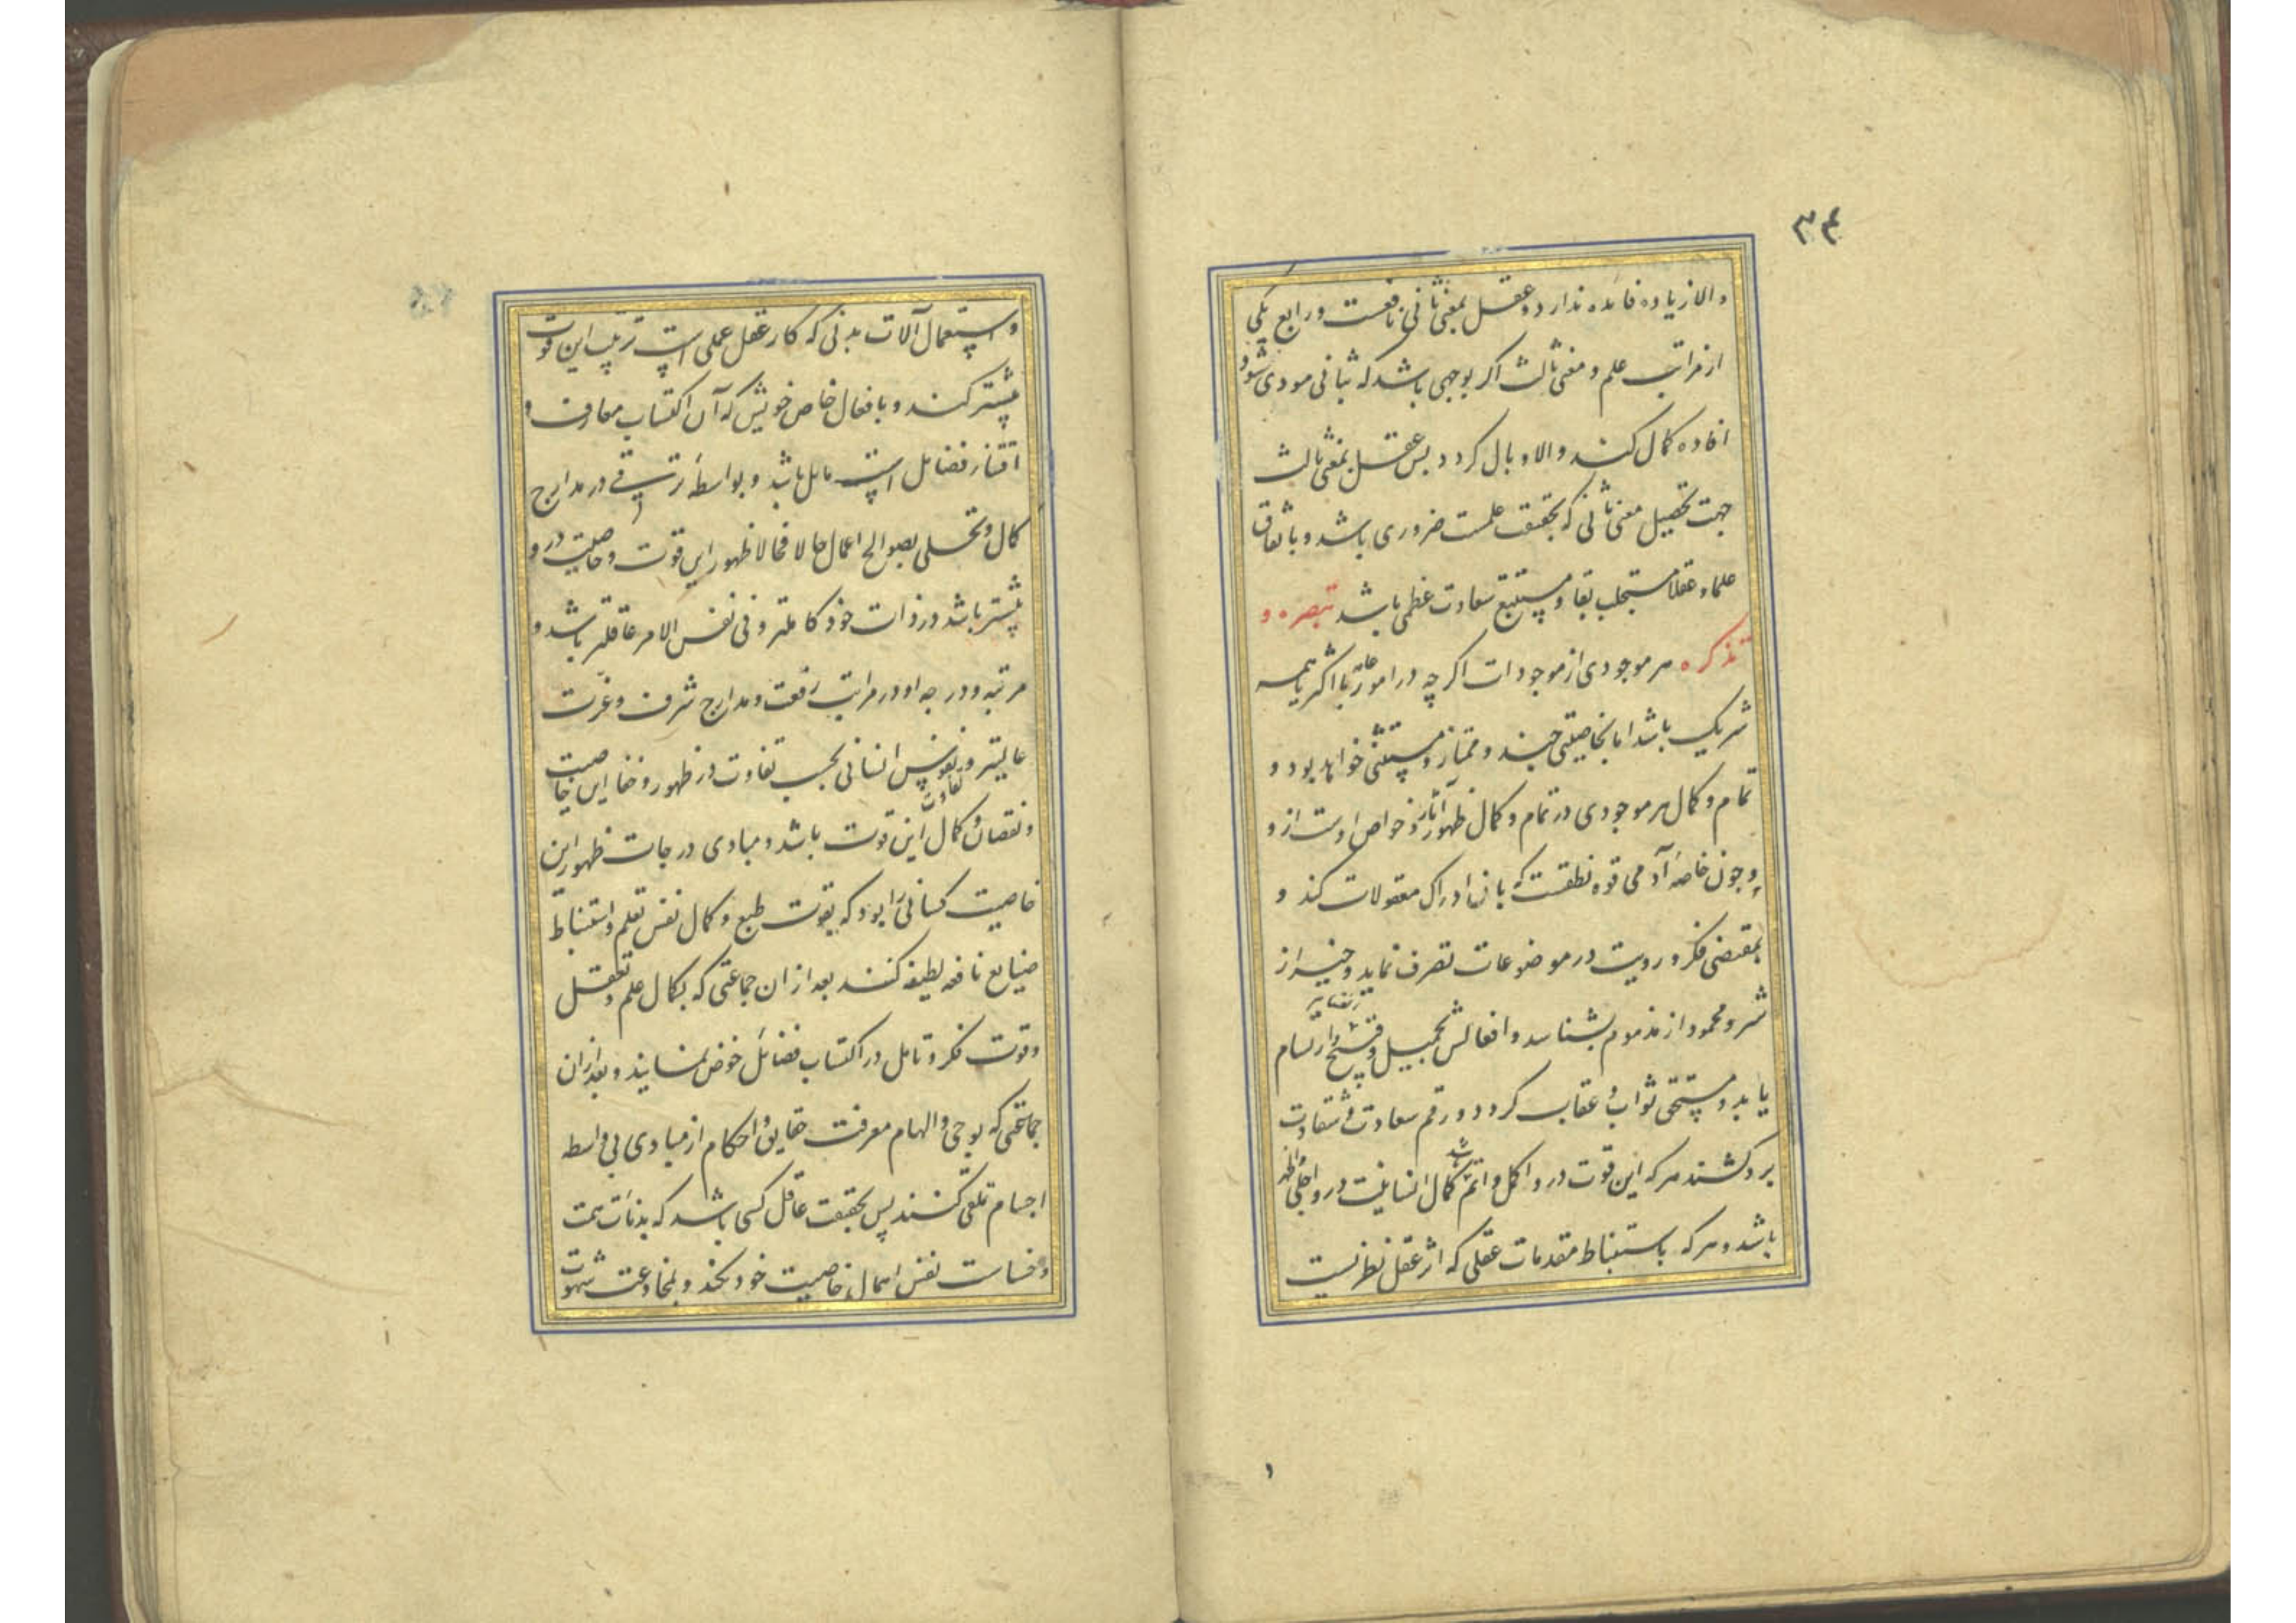 ۳۴
والا زیاده فائده ندارد و عقل بمعنی ثانی نافعست و رابع یکی
از مراتب علم و معنی ثالث اکر بوجهی باشد که بثانی مودی شود
افاده کمال کند والا وبال کردد پس عقل بمعنی ثالث
جهت تحصیل معنی ثانی که بحقیقت علمست ضروری باشد و باتفاق
علما و عقلا مستجلب بقا و مستتبع سعادت عظمی باشد تبصره و
تذکره هر موجودی از موجودات اکر چه در امور عامه با اکثر یا همه
شریک باشد اما بخاصیتی چند ممتاز و مستثنی خواهد بود و
تمام و کمال هر موجودی در تمام و کمال ظهور آثار و خواص اوست ازو
و چون خاصه آدمی قوه نطقست که بان ادراک معقولات کند و
بمقتضی فکر و رویت در موضوعات تصرف نماید و خیر از
شر و محمود از مذموم بشناسد و افعالش بجمیل و قبیح ارتسام
یابد و مستحق ثواب و عقاب کردد و رقم سعادت و شقاوت
برو کشند هر که این قوت درو اکمل و اتم باشد کمال انسانیت درو اجلی و اظهر
باشد و هر که باستنباط مقدمات عقلی که اثر عقل نظریست
و استعمال آلات بدنی که کار عقل عملی است ترتیب این قوت
بیشتر کند و بافعال خاص خویش که آن اکتساب معارف و
اقتناء فضائل است مایل باشد و بواسطه ترقی در مدارج
کمال و تحلی بصوالح اعمال حالا فحالا ظهور این قوت و خاصیت درو
بیشتر باشد در ذات خود کاملتر و فی نفس الامر عاقلتر باشد و
مرتبه و درجه او در مراتب رفعت و مدارج شرف و عزت
عالیتر و تفاوت نفوس انسانی بحسب تفاوت در ظهور و خفا این خاصیت
و نقصان و کمال این قوت باشد و مبادی درجات ظهور این
خاصیت کسانی را بود که بقوت طبع و کمال نفس تعلم و استنباط
صنایع نافعه لطیفه کنند بعد از ان جماعتی که بکمال علم و تعقل
و قوت فکر و تامل در اکتساب فضائل خوض نمایند و بعد ازان
جماعتی که بوحی و الهام معرفت حقایق و احکام از مبادی بی واسطه
اجسام تلقی کنند پس بحقیقت عاقل کسی باشد که بدنائت همت
و خساست نفس اهمال خاصیت خود نکند و بمخادعت شهوت